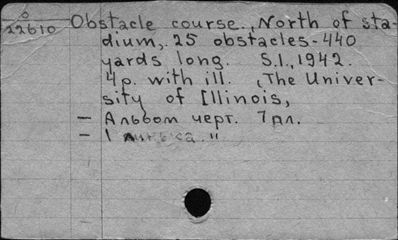 0
22610
Obstacle course., North of sta-
dium,. 25 obstacles-440
yards long. S.l., 1942.
4p. with ill. ,The Univer-
sity of Illinois,
— Альбом черт. 7пл.
— 1 "